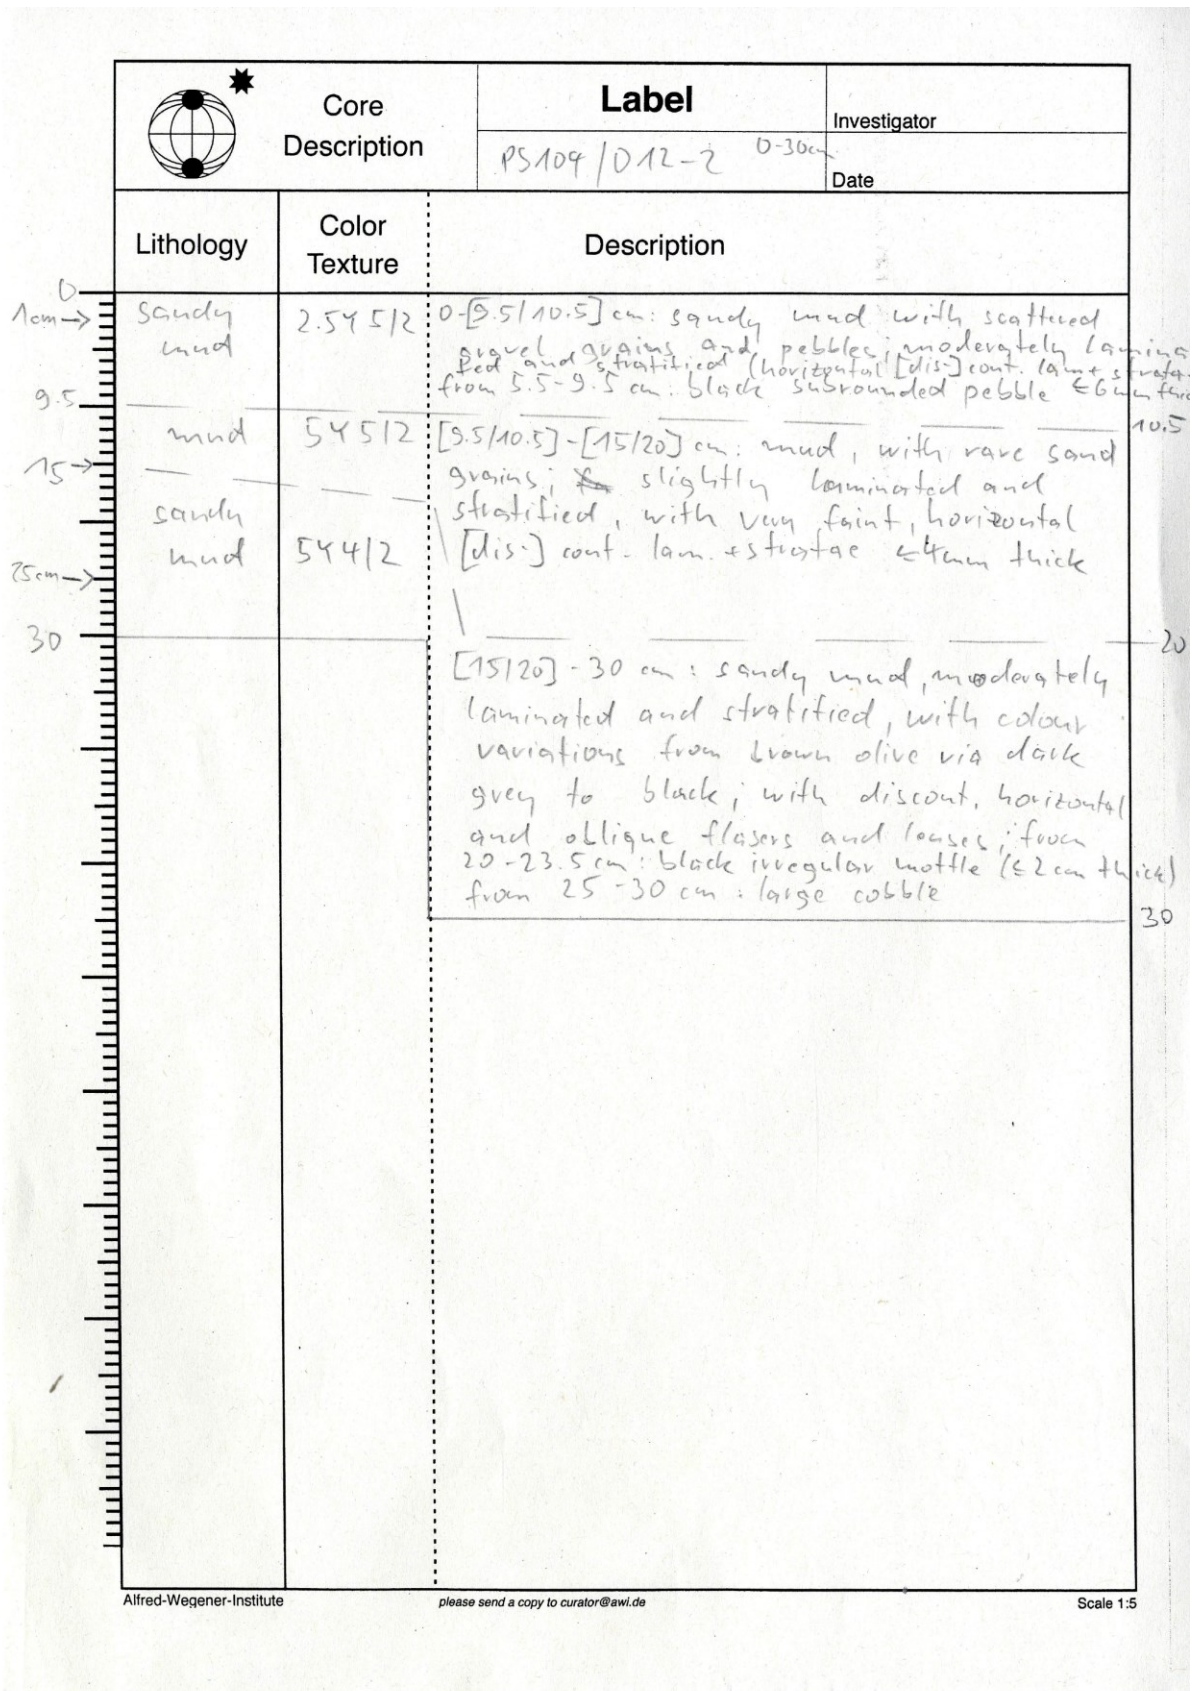 Core
Description
Label
PS109/012-2 0-30cm
Investigator
Date
Lithology
Color
Texture
Description
0
1cm→
9.5
15→
25cm→
30
sandy
mud
mud
sandy
mud
2.5Y 5/2
5Y 5/2
5Y 4/2
0-[9.5/10.5] cm: sandy mud with scattered
gravel grains and pebbles; moderately lamina
ted and stratified (horizontal [dis-] cont. lam + strata
from 5.5-9.5 cm: black subrounded pebble ≤6mm thic
10.5
[9.5/10.5]-[15/20] cm: mud, with rare sand
grains; slightly laminated and
stratified, with very faint, horizontal
[dis-] cont. lam. + stratae ≤4mm thick
20
[15/20]-30 cm: sandy mud, moderately
laminated and stratified, with colour
variations from brown olive via dark
grey to black; with discont, horizontal
and oblique flasers and lenses; from
20-23.5 cm: black irregular mottle (≤2 cm thick)
from 25-30 cm: large cobble
30
Alfred-Wegener-Institute
please send a copy to curator@awi.de
Scale 1:5